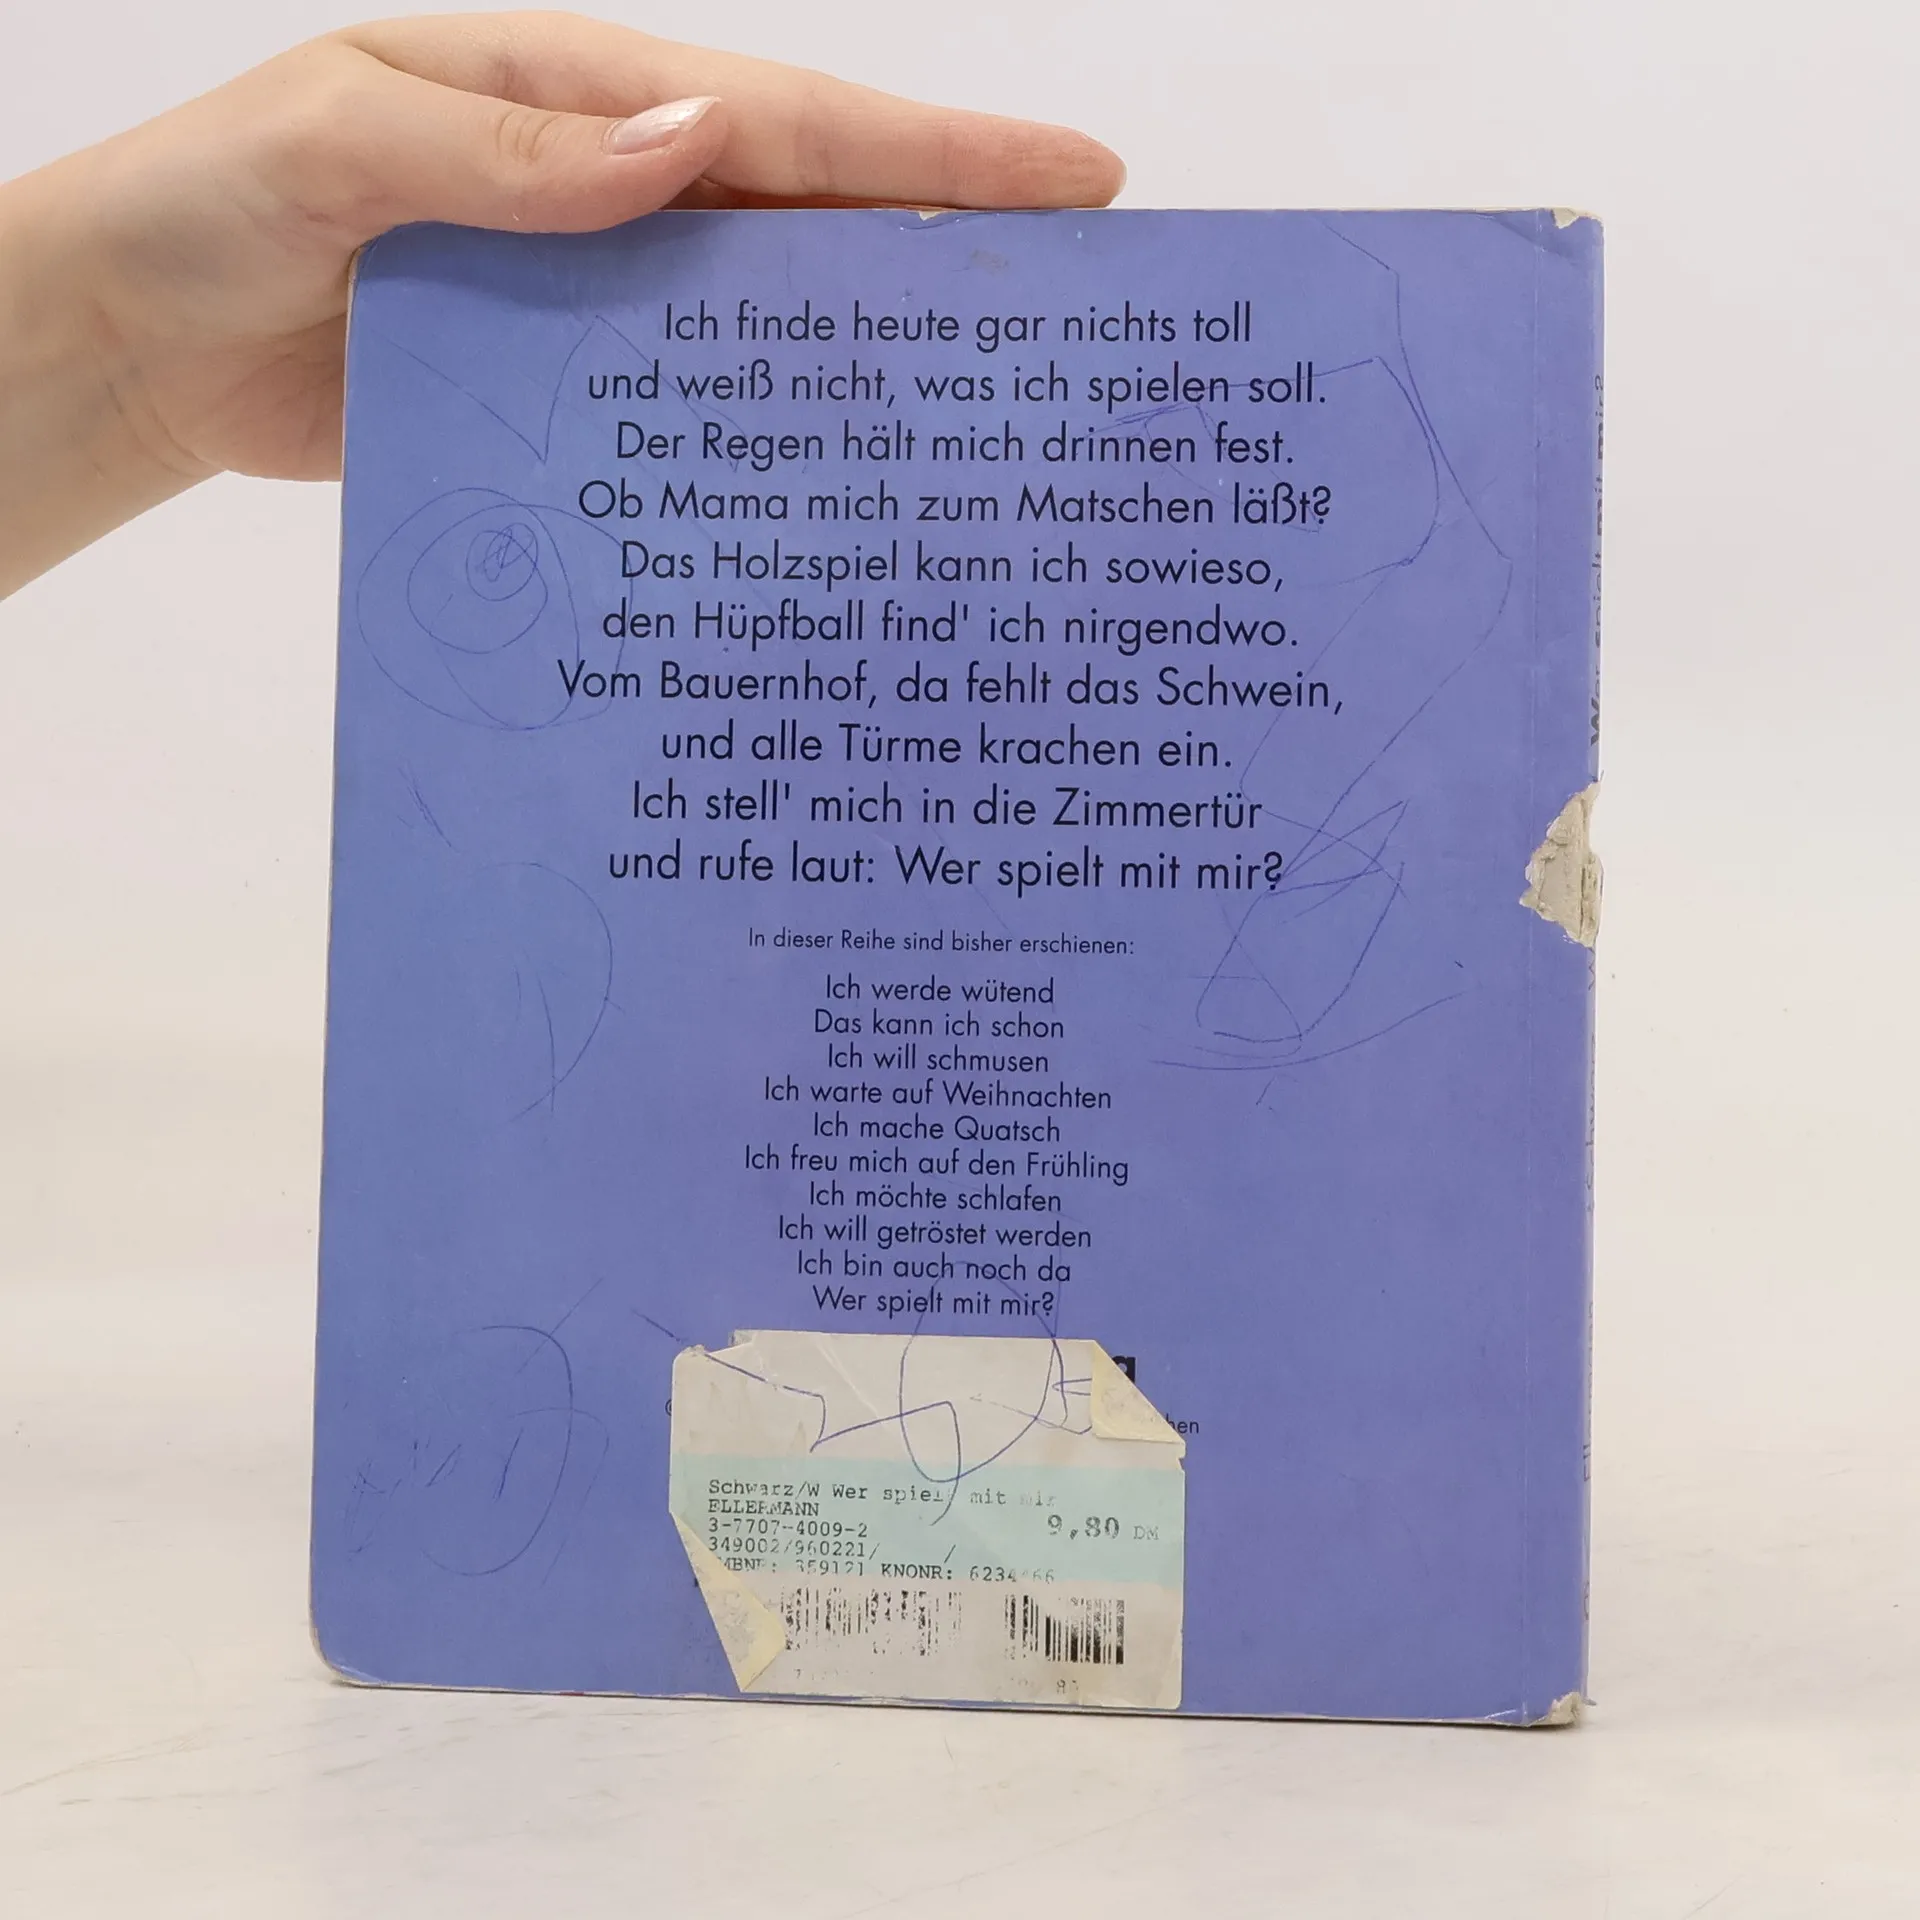 Ich finde heute gar nichts toll
und weiß nicht, was ich spielen soll.
Der Regen hält mich drinnen fest.
Ob Mama mich zum Matschen läßt?
Das Holzspiel kann ich sowieso,
den Hüpfball find' ich nirgendwo.
Vom Bauernhof, da fehlt das Schwein,
und alle Türme krachen ein.
Ich stell' mich in die Zimmertür
und rufe laut: Wer spielt mit mir?
In dieser Reihe sind bisher erschienen:
Ich werde wütend
Das kann ich schon
Ich will schmusen
Ich warte auf Weihnachten
Ich mache Quatsch
Ich freu mich auf den Frühling
Ich möchte schlafen
Ich will getröstet werden
Ich bin auch noch da
Wer spielt mit mir?
Schwarz/W Wer spielt mit mir
ELLERMANN
3-7707-4009-2
9,80 DM
349002/960221/ /
KNONR:
Wer spielt mit mir?